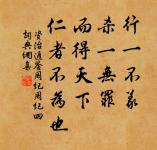 行一不義
殺一無罪
而得天下
仁者不為也
資治通鑑周紀周紀四
詞典網集